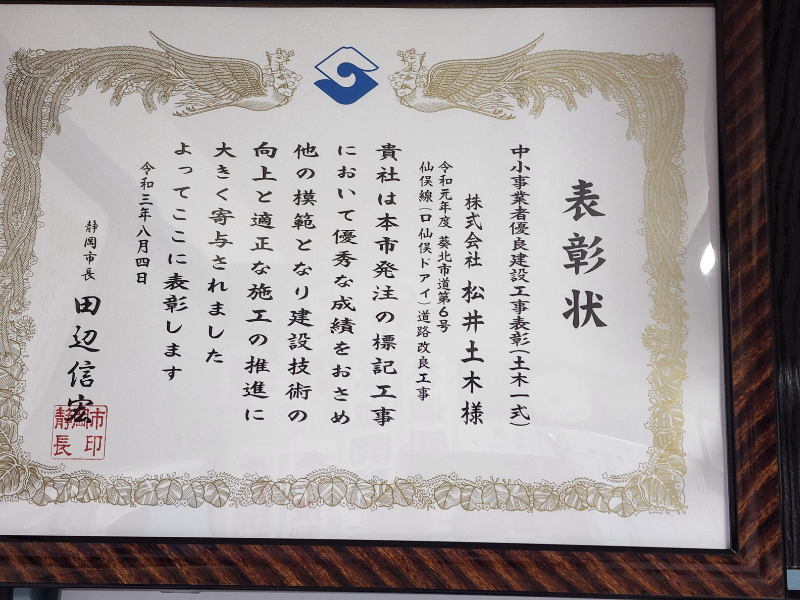 表彰状
中小事業者優良建設工事表彰(土木一式)
株式会社 松井土木様
令和元年度 葵北市道第6号
仙俣線(口仙俣ドアイ)道路改良工事
貴社は本市発注の標記工事
において優秀な成績をおさめ
他の模範となり建設技術の
向上と適正な施工の推進に
大きく寄与されました
よってここに表彰します
令和三年八月四日
静岡市長 田辺信宏
静岡市長印